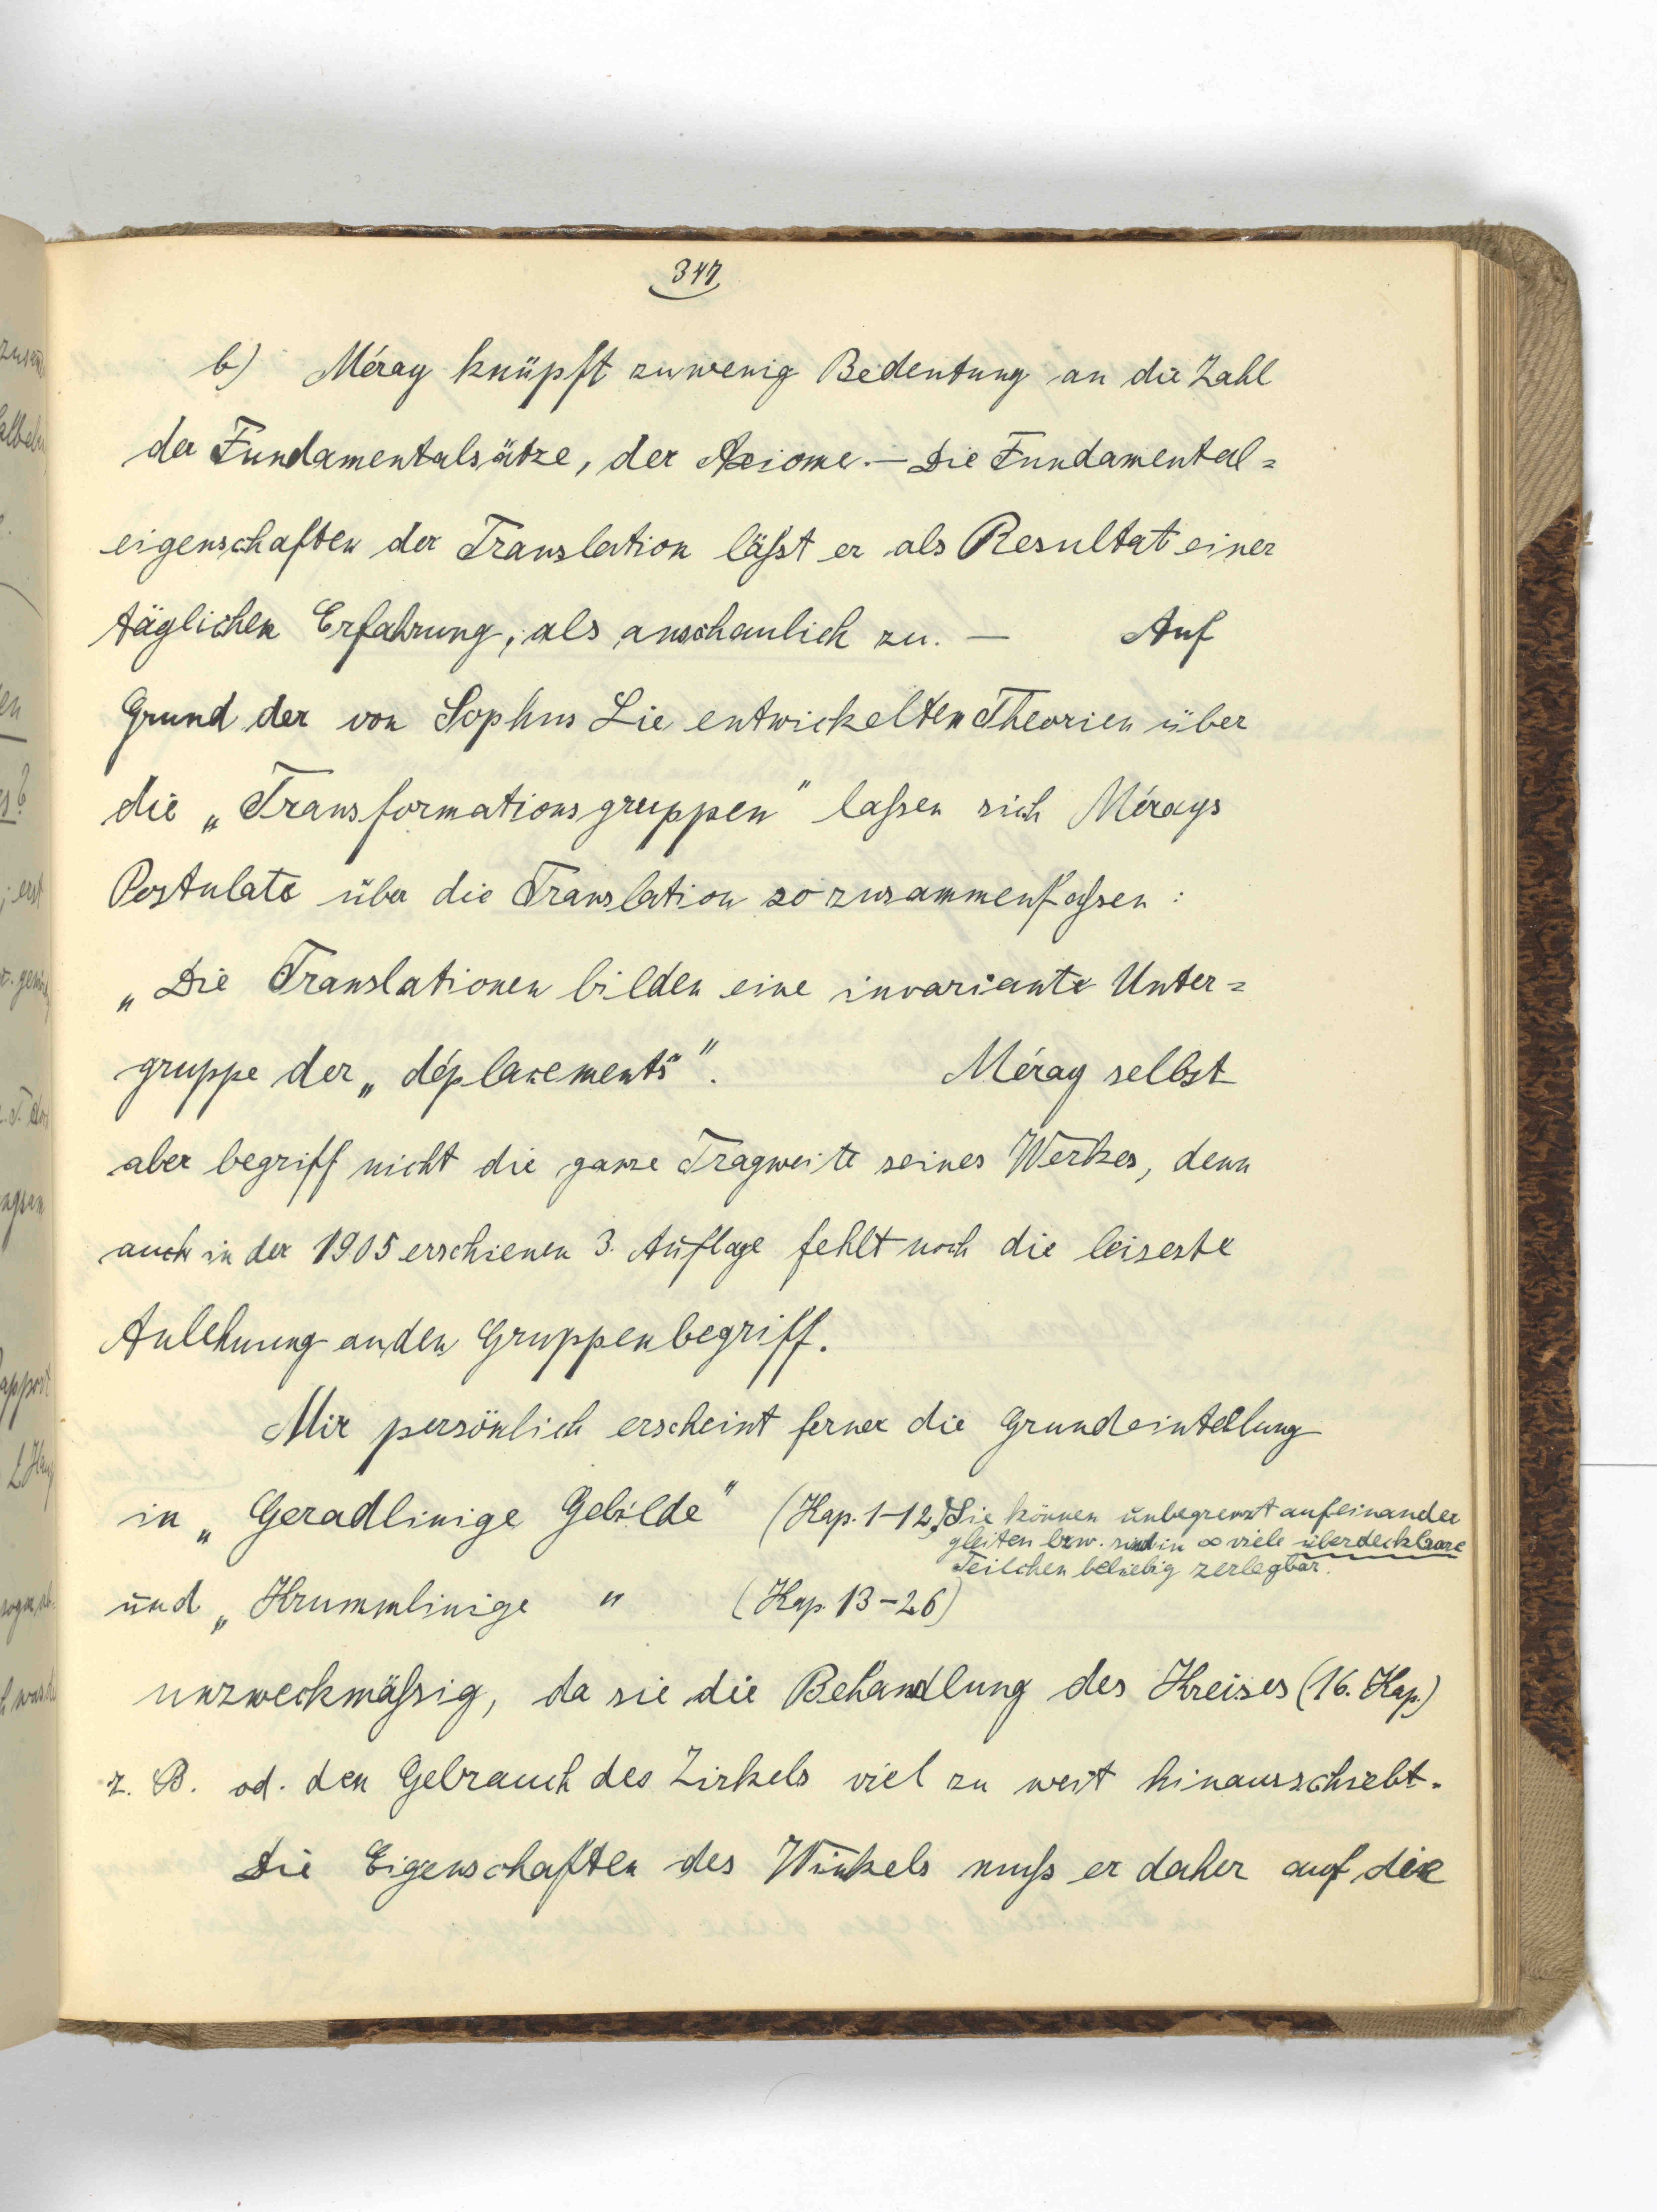 347
b) Méray knüpft zuwenig Bedeutung an die Zahl
der Fundamentalsätze, der Axiome. — Die Fundamental=
eigenschaften der Translation läßt er als Resultat einer
täglichen Erfahrung, als anschaulich zu. — Auf
Grund der von Sophus Lie entwickelten Theorien über
die „Transformationsgruppen" laßen sich Mérays
Postulate über die Translation so zusammenfaßen:
„Die Translationen bilden eine invariante Unter=
gruppe der „déplacements"".  Méray selbst
aber begriff nicht die ganze Tragweite seines Werkes, denn
auch in der 1905 erschienen 3. Auflage fehlt noch die leiseste
Anlehnung an den Gruppenbegriff.
Mir persönlich erscheint ferner die Grundeinteilung
in „Geradlinige Gebilde" (Kap. 1–12) Sie können unbegrenzt aufeinander
gleiten bzw. sind in ∞ viele überdeckbare
Teilchen beliebig zerlegbar.
und „Krummlinige " (Kap. 13–26)
unzweckmäßig, da sie die Behandlung des Kreises (16. Kap.)
z. B. od. den Gebrauch des Zirkels viel zu weit hinausschiebt.
Die Eigenschaften des Winkels muß er daher auf die